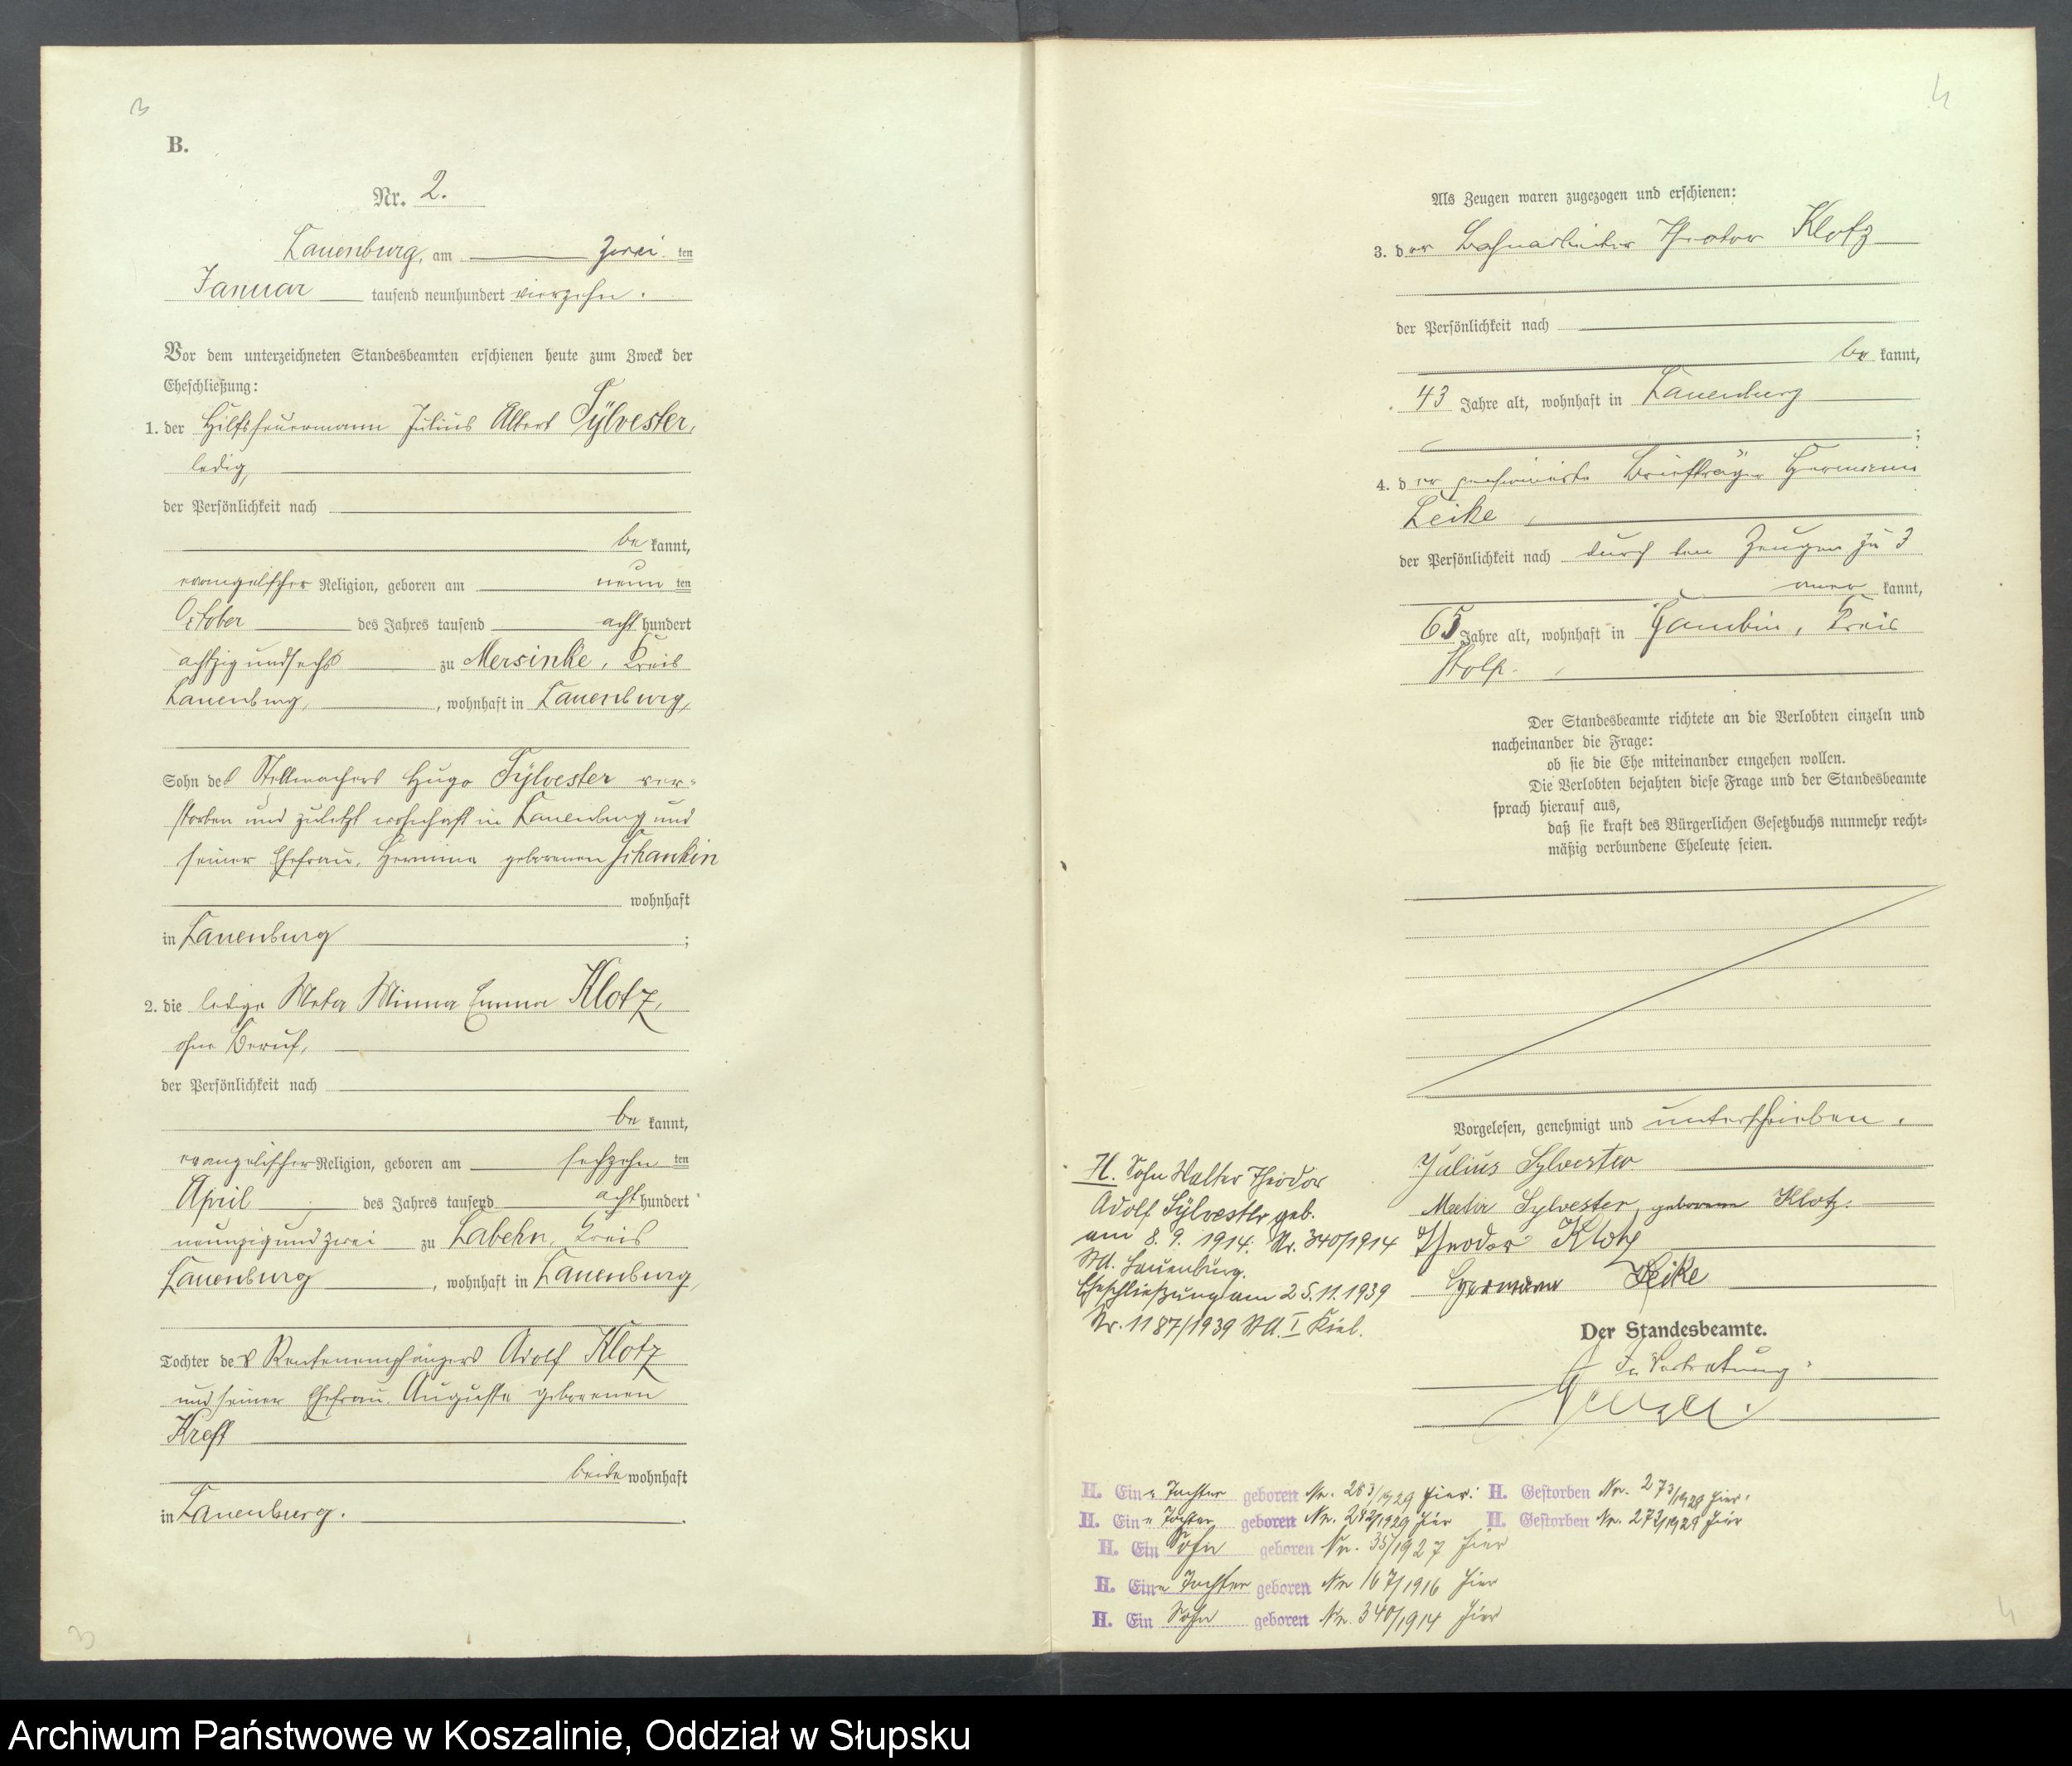 3
B.
Nr. 2.
Lauenburg, am zwei ten
Januar tausend neunhundert vierzehn.
Vor dem unterzeichneten Standesbeamten erschienen heute zum Zweck der
Eheschließung:
1. der Hilfsfeuermann Julius Albert Sylvester,
ledig,
der Persönlichkeit nach
be kannt,
evangelischer Religion, geboren am neun ten
October des Jahres tausend acht hundert
achtzig und sechs zu Mersinke, Kreis
Lauenburg, , wohnhaft in Lauenburg,
Sohn des Stellmachers Hugo Sylvester ver-
storben und zuletzt wohnhaft in Lauenburg und
seiner Ehefrau, Hermine geborenen Schankin
wohnhaft
in Lauenburg ;
2. die ledige Meta Minna Emma Klotz,
ohne Beruf,
der Persönlichkeit nach
be kannt,
evangelischer Religion, geboren am sechzehn ten
April des Jahres tausend acht hundert
neunzig und zwei zu Labehn, Kreis
Lauenburg , wohnhaft in Lauenburg,
Tochter des Rentenempfängers Adolf Klotz
und seiner Ehefrau, Auguste geborenen
Kreft
beide wohnhaft
in Lauenburg. .
3
4
Als Zeugen waren zugezogen und erschienen:
3. der Bahnarbeiter Theodor Klotz
der Persönlichkeit nach
be kannt,
43 Jahre alt, wohnhaft in Lauenburg
;
4. der pensionierte Briefträger Hermann
Leike,
der Persönlichkeit nach durch den Zeugen zu 3
aner kannt,
65 Jahre alt, wohnhaft in Gambin, Kreis
Stolp.
Der Standesbeamte richtete an die Verlobten einzeln und
nacheinander die Frage:
ob sie die Ehe miteinander eingehen wollen.
Die Verlobten bejahten diese Frage und der Standesbeamte
sprach hierauf aus,
daß sie kraft des Bürgerlichen Gesetzbuchs nunmehr recht-
mäßig verbundene Eheleute seien.
Vorgelesen, genehmigt und unterschrieben.
Julius Sylvester
Meta Sylvester, geborene Klotz.
Theodor Klotz
Hermann Leike
Der Standesbeamte.
In Vertretung.
H. Sohn Walter Theodor
Adolf Sylvester geb.
am 8. 9. 1914. Nr. 340/1914
StA. Lauenburg.
Eheschließung am 25.11.1939
Nr. 1187/1939 StA. I Kiel.
H. Eine Tochter geboren Nr. 283/1929 hier. H. Gestorben Nr. 273/1929 hier.
H. Eine Tochter geboren Nr. 282/1929 hier H. Gestorben Nr. 272/1929 hier
H. Ein Sohn geboren Nr. 35/1927 hier
H. Eine Tochter geboren Nr. 167/1916 hier
H. Ein Sohn geboren Nr. 340/1914 hier
4
Archiwum Państwowe w Koszalinie, Oddział w Słupsku